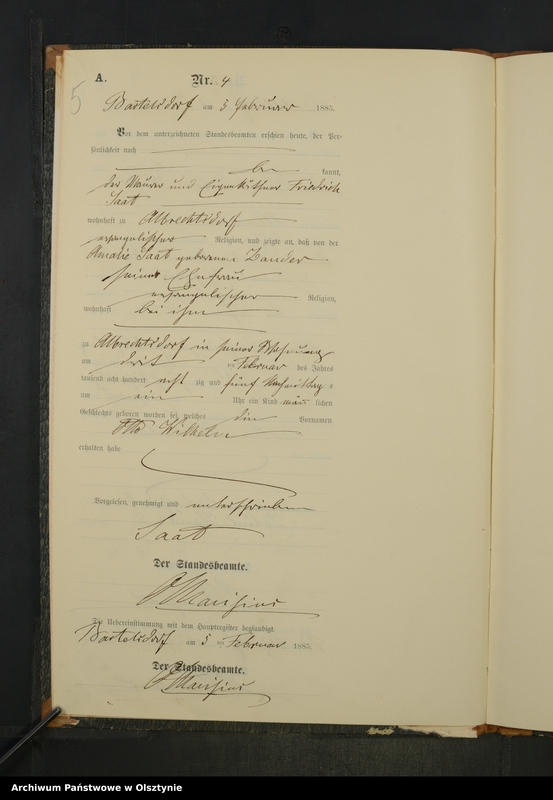 A. Nr. 4
5
Bartelsdorf am 5 Februar 1885.
Vor dem unterzeichneten Standesbeamten erschien heute, der Per-
sönlichkeit nach
be kannt,
der Maurer und Eigenkäthner Friedrich
Saat
wohnhaft zu Albrechtsdorf
evangelischer Religion, und zeigte an, daß von der
Amalie Saat geborenen Zander
seiner Ehefrau
evangelischer Religion,
wohnhaft bei ihm
zu Albrechtsdorf in seiner Wohnung
am drit ten Februar des Jahres
tausend acht hundert acht zig und fünf Nachmittag s
um ein Uhr ein Kind männ lichen
Geschlechts geboren worden sei, welches die Vornamen
Otto Wilhelm
erhalten habe
Vorgelesen, genehmigt und unterschrieben
Saat
Der Standesbeamte.
Die Uebereinstimmung mit dem Hauptregister beglaubigt.
Bartelsdorf am 5 ten Februar 1885.
Der Standesbeamte.
Archiwum Państwowe w Olsztynie